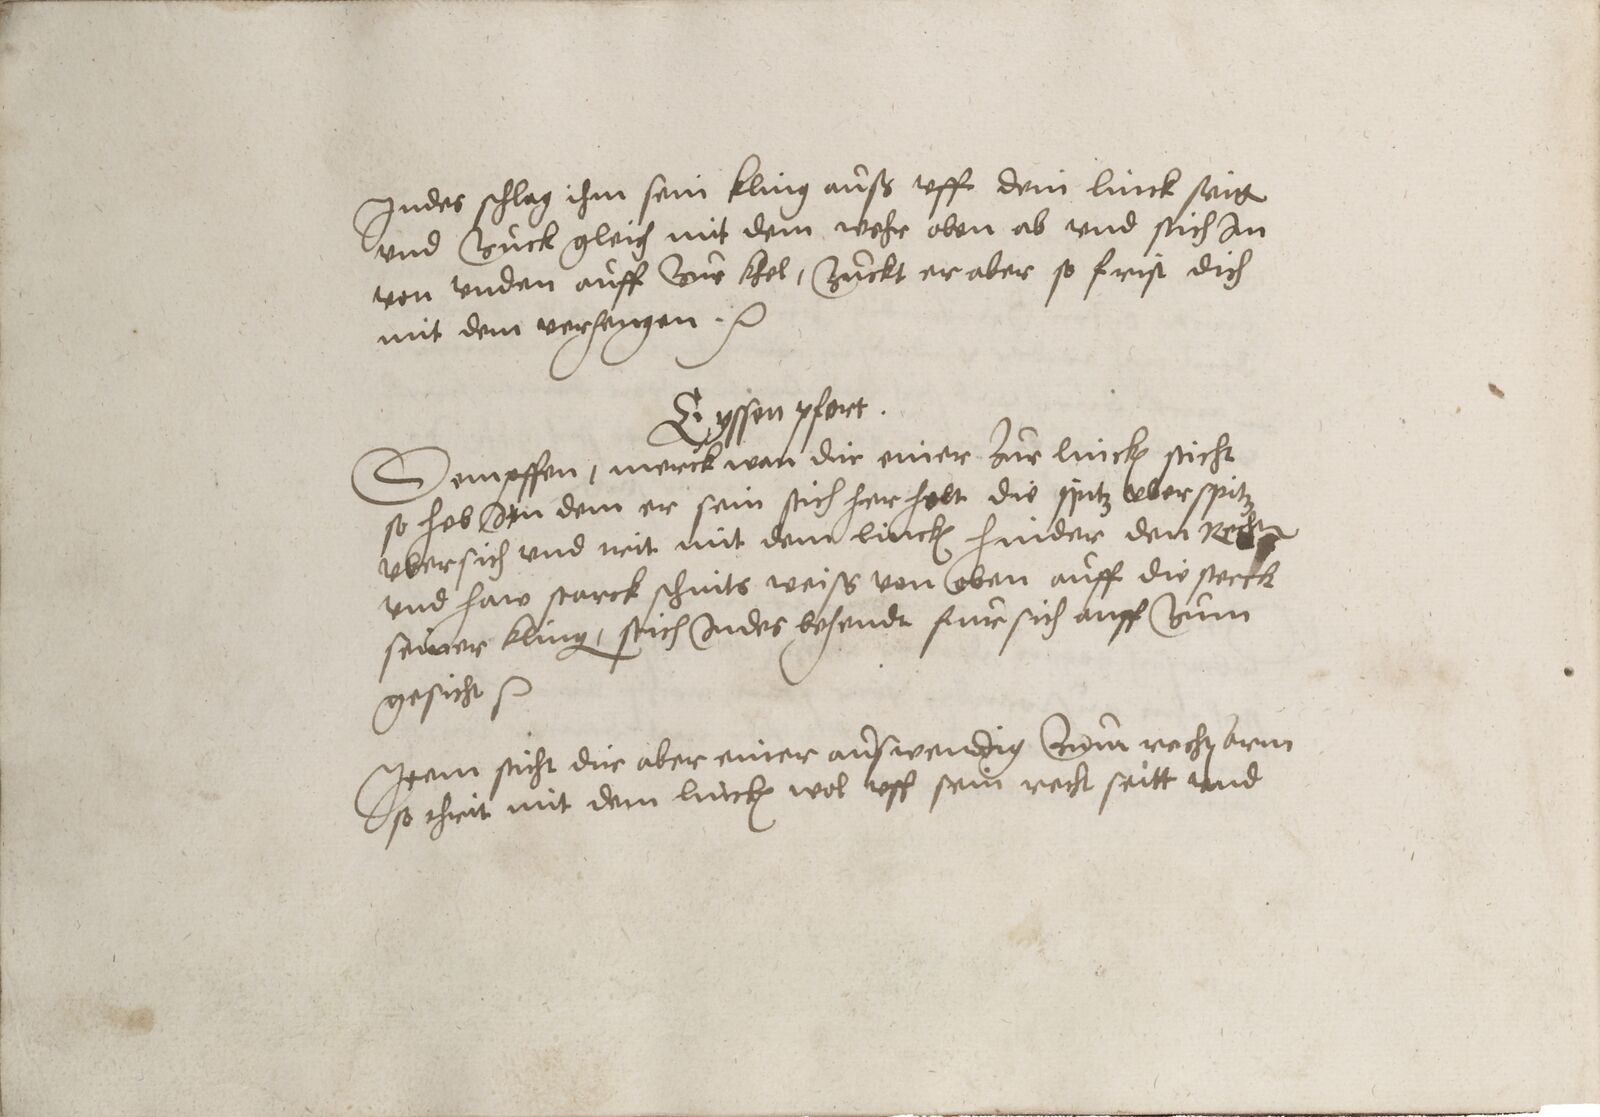 Indes schlag ihm sein kling auß vff dein linck seitt
vnd Zuck gleich mit dem wehr oben ab vnd stich Im
von vnden auff Zur kel, Zuckt er aber so frist dich
mit dem verhengen.
Eyssen pfort.
Dempffen, merck wan dir einer Zur linck sticht
so heb In dem er sein stich her helt die spitz vberspitz
vbersich vnd trit mit dem linck hinder den Recht
vnd haw starck schnits weiß von oben auff die sterck
seiner kling, stich Indes behendt fur sich auff Zum
gesicht
Item sticht dir aber einer auswendig Zum recht arm
so thrit mit dem linck wol vff sein recht seitt vnd